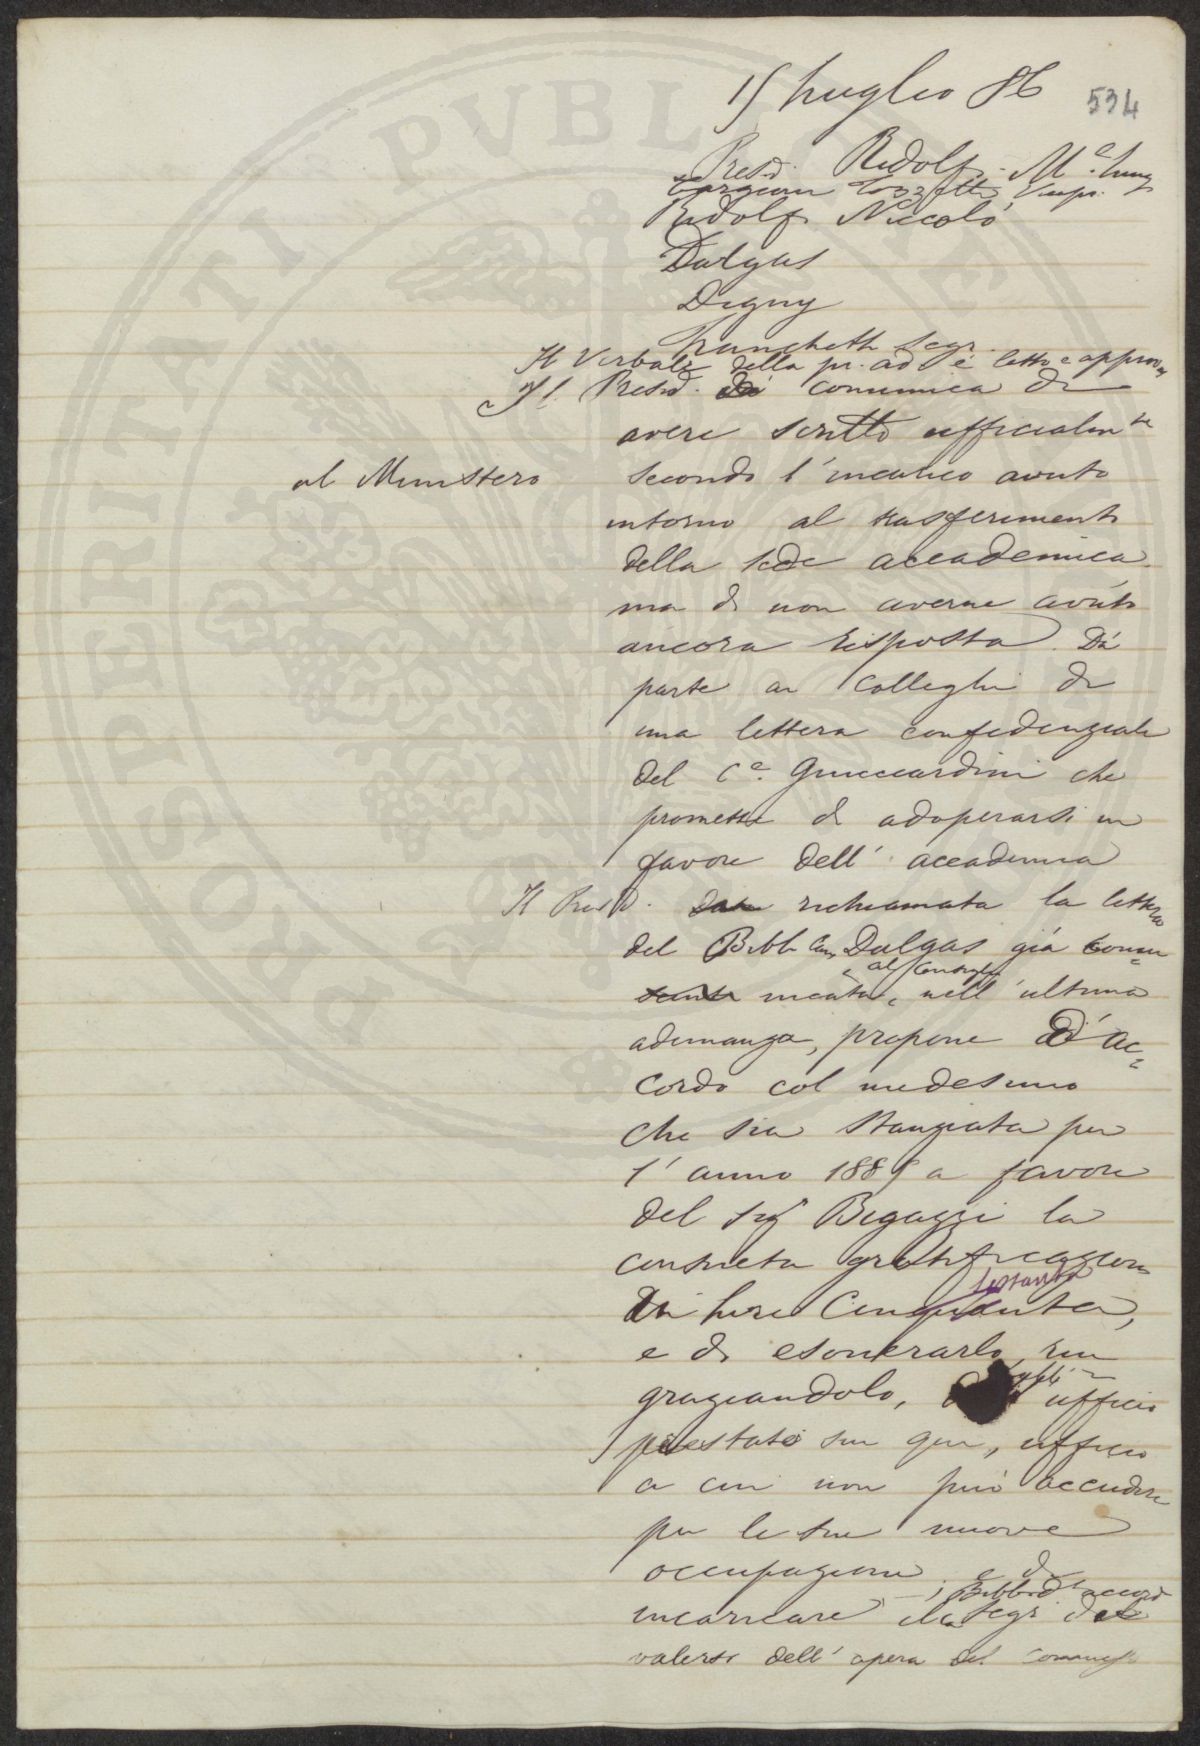 15 Luglio 86
534
Presid. Ridolfi M.e Luigi
Targioni Tozzetti, Vicepr.
Ridolfi Niccolò
Dalgas
Digny
Franchetti Segr.
Il Verbale della pr. ad. è letto e approv
Il Presid. comunica di
avere scritto ufficialmte
al Ministero
secondo l'incarico avuto
intorno al trasferimento
della sede accademica
ma di non averne avuto
ancora risposta. Dà
parte ai Colleghi di
una lettera confidenziale
del Ce. Guicciardini che
promette di adoperarsi in
favore dell' accademia
Il Presid. richiamata la lettera
del Bibl Cav Dalgas già comu=
nicata, al Consiglio nell'ultima
adunanza, propone d'ac=
cordo col medesimo
che sia stanziata per
l'anno 1885 a favore
del Sig Bigazzi la
consueta gratificazione
settanta
di Lire Cinquanta,
e di esonerarlo, rin
graziandolo, ufficio
prestato sin qui, ufficio
a cui non può accudire
per le sue nuove
occupazioni, e di
Bibl. d'accordo
incaricare il Segr. del
valersi dell'opera del commesso
PROSPERITATI PUBLICAE